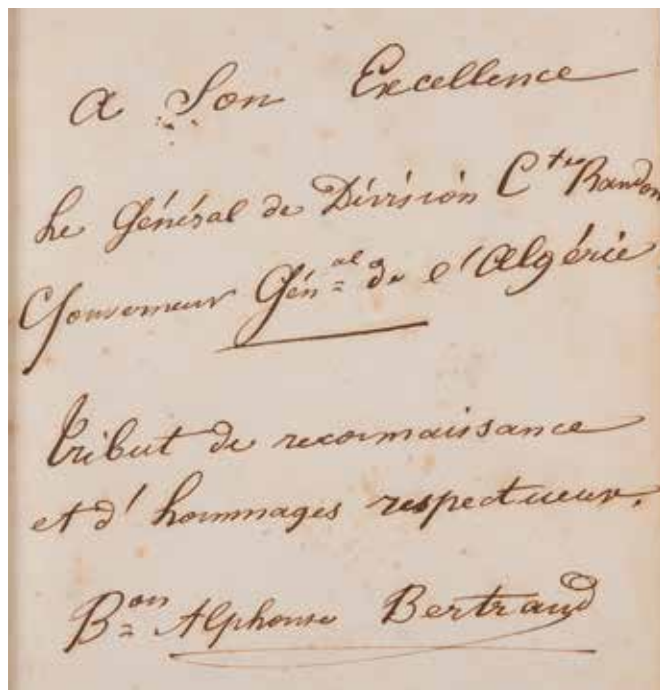 A Son Excellence
Le Général de Division Cte Randon
Gouverneur Génal de l'Algérie
Tribut de reconnaissance
et d'hommages respectueux.
Bon Alphonse Bertrand